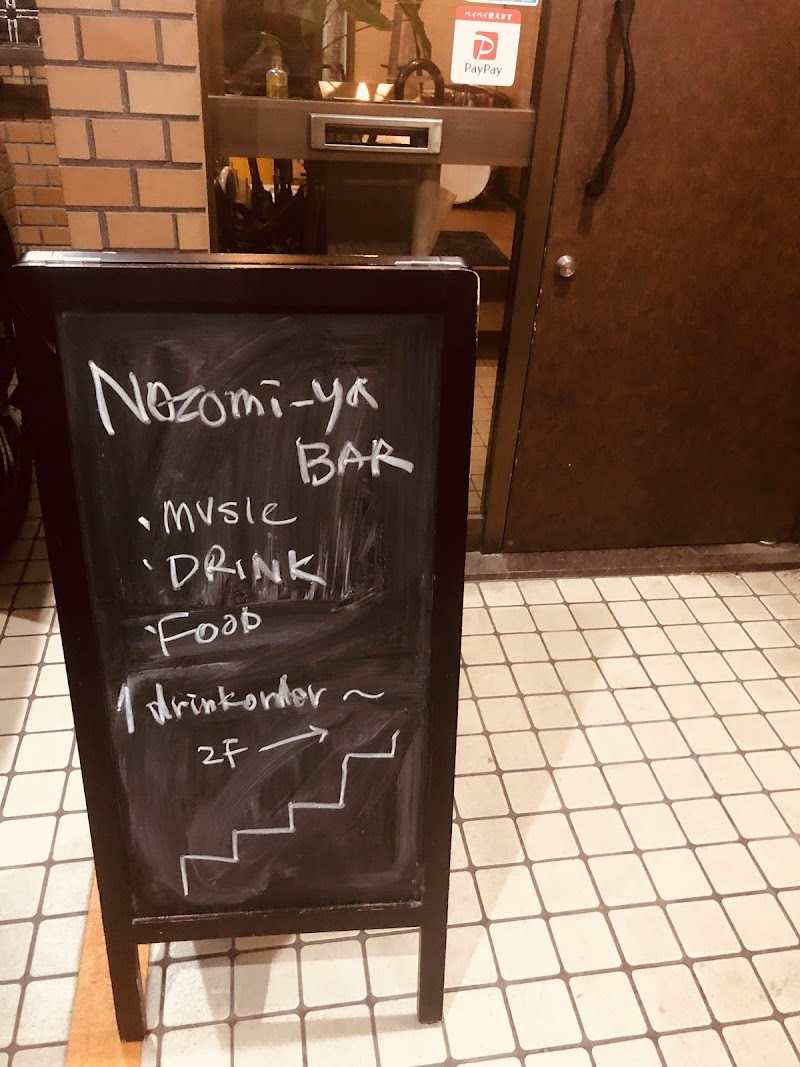 ペイペイ使えます
PayPay
Nozomi-ya
BAR
・MUSIC
・DRINK
・FOOD
1 drink order ～
2F →